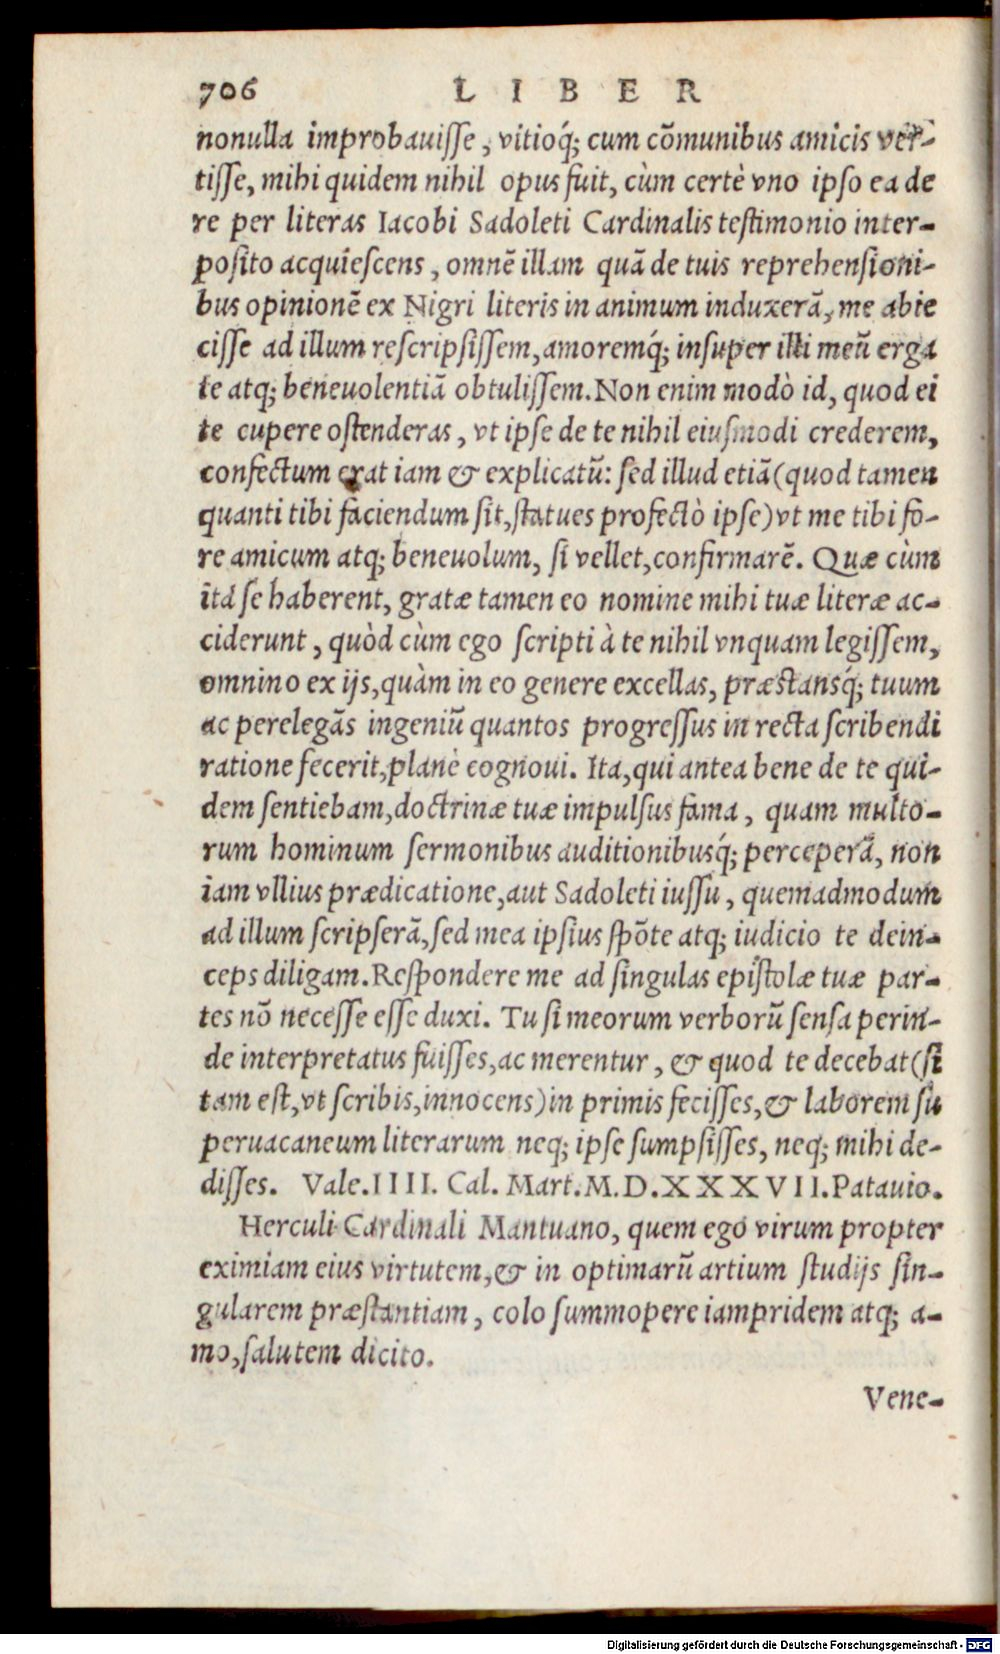 706 LIBER
nonulla improbauisse, vitioq́; cum cõmunibus amicis ver-
tisse, mihi quidem nihil opus fuit, cùm certè vno ipso ea de
re per literas Iacobi Sadoleti Cardinalis testimonio inter-
posito acquiescens, omnẽ illam quã de tuis reprehensioni-
bus opinionẽ ex Nigri literis in animum induxerã, me abie
cisse ad illum rescripsissem, amoremq́; insuper illi meũ erga
te atq; beneuolentiã obtulissem. Non enim modò id, quod ei
te cupere ostenderas, vt ipse de te nihil eiusmodi crederem,
confectum erat iam & explicatũ: sed illud etiã (quod tamen
quanti tibi faciendum sit, statues profectò ipse) vt me tibi fo-
re amicum atq; beneuolum, si vellet, confirmarẽ. Quæ cùm
ita se haberent, gratæ tamen eo nomine mihi tuæ literæ ac-
ciderunt, quòd cùm ego scripti à te nihil vnquam legissem,
omnino ex ijs, quàm in eo genere excellas, præstansq́; tuum
ac perelegãs ingeniũ quantos progressus in recta scribendi
ratione fecerit, planè cognoui. Ita, qui antea bene de te qui-
dem sentiebam, doctrinæ tuæ impulsus fama, quam multo-
rum hominum sermonibus auditionibusq́; perceperã, non
iam vllius prædicatione, aut Sadoleti iussu, quemadmodum
ad illum scripserã, sed mea ipsius spõte atq; iudicio te dein-
ceps diligam. Respondere me ad singulas epistolæ tuæ par-
tes nõ necesse esse duxi. Tu si meorum verborũ sensa perin-
de interpretatus fuisses, ac merentur, & quod te decebat (si
tam est, vt scribis, innocens) in primis fecisses, & laborem su
peruacaneum literarum neq; ipse sumpsisses, neq; mihi de-
disses. Vale. IIII. Cal. Mart. M.D.XXXVII. Patauio.
Herculi Cardinali Mantuano, quem ego virum propter
eximiam eius virtutem, & in optimarũ artium studijs sin-
gularem præstantiam, colo summopere iampridem atq; a-
mo, salutem dicito.
Vene-
Digitalisierung gefördert durch die Deutsche Forschungsgemeinschaft - DFG